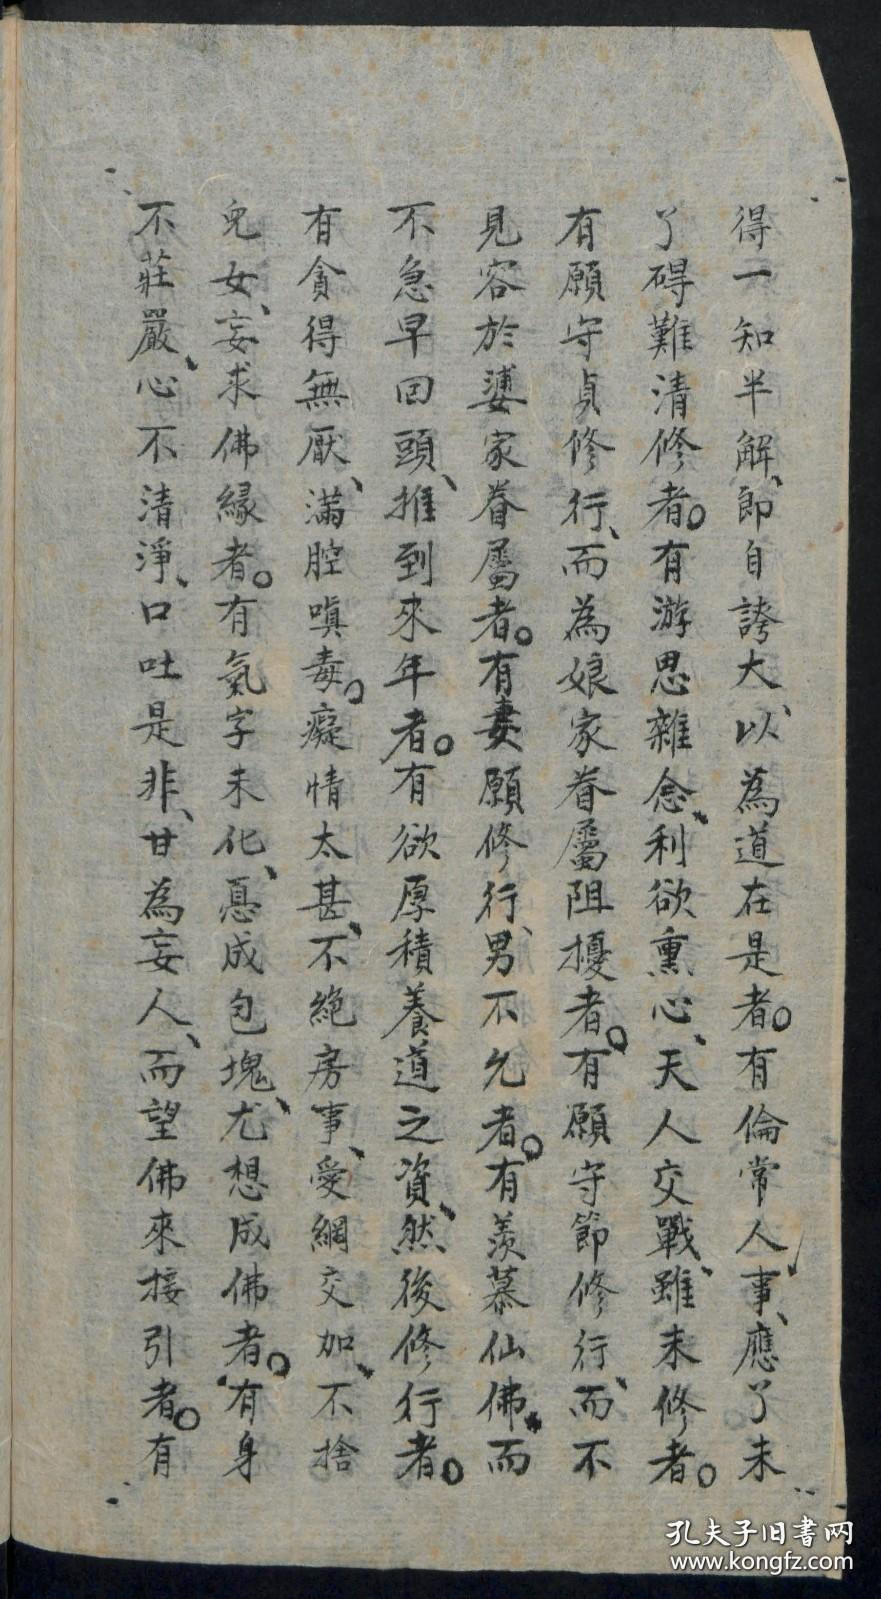 得一知半解、即自誇大、以為道在是者。有倫常人事、應了未
了、碍難清修者。有游思雜念、利欲熏心、天人交戰、雖未修者。
有願守貞修行、而為娘家眷屬阻擾者。有願守節修行、而不
見容於婆家眷屬者。有妻願修行、男不允者。有羡慕仙佛、而
不急早回頭、推到來年者。有欲厚積養道之資、然後修行者。
有貪得無厭、滿腔嗔毒。癡情太甚、不絕房事、愛網交加、不捨
兒女、妄求佛緣者。有氣字未化、惪成包塊、尤想成佛者。有身
不莊嚴、心不清淨、口吐是非、甘為妄人、而望佛來接引者。有
孔夫子旧书网
www.kongfz.com